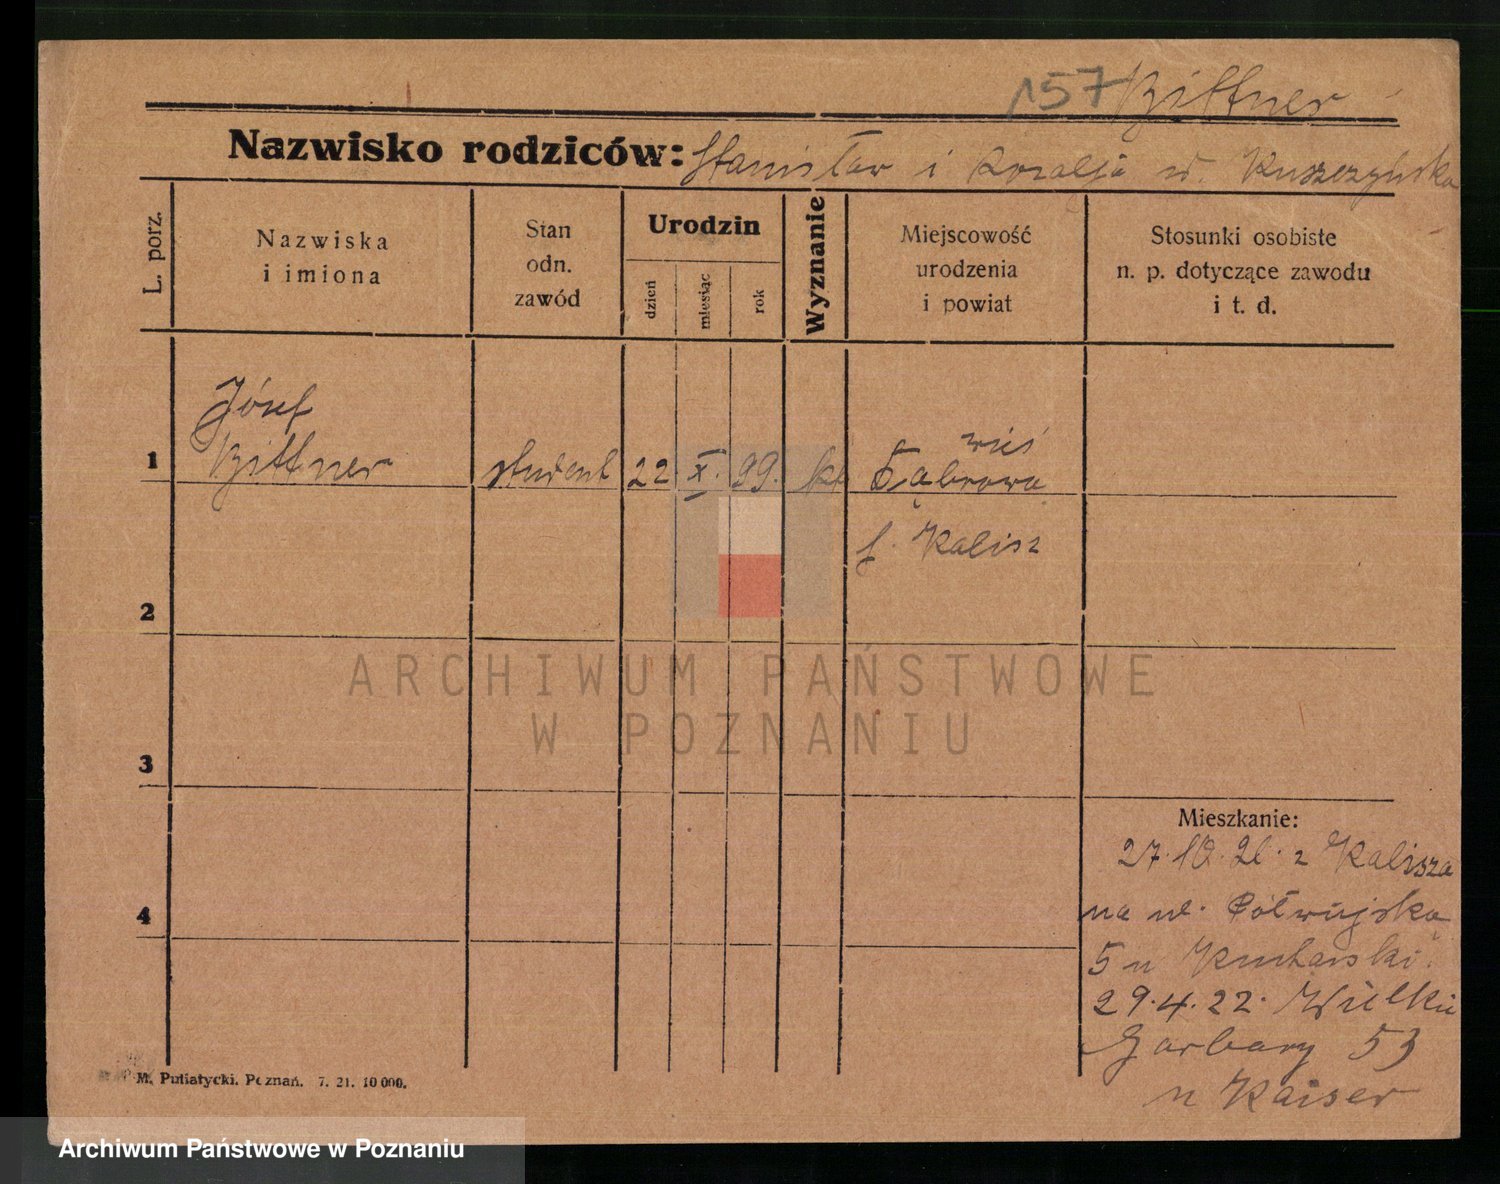 157 Bittner
Nazwisko rodziców: Stanisław i Rozalja
L. porz.
Nazwiska
i imiona
Stan
odn.
zawód
Urodzin
dzień
miesiąc
rok
Wyznanie
Miejscowość
urodzenia
i powiat
Stosunki osobiste
n. p. dotyczące zawodu
i t. d.
Józef
wieś
1 Bittner student 22 X. 99. kt Dąbrowa
Kalisz
2
ARCHIWUM PAŃSTWOWE
W POZNANIU
3
Mieszkanie:
27.10.21. z Kalisza
4
na ul. Półwiejską
5 u Kucharski.
29.4.22. Wielkie
Garbary 53
u Kaiser
M. Putiatycki. Poznań. 7. 21. 10 000.
Archiwum Państwowe w Poznaniu